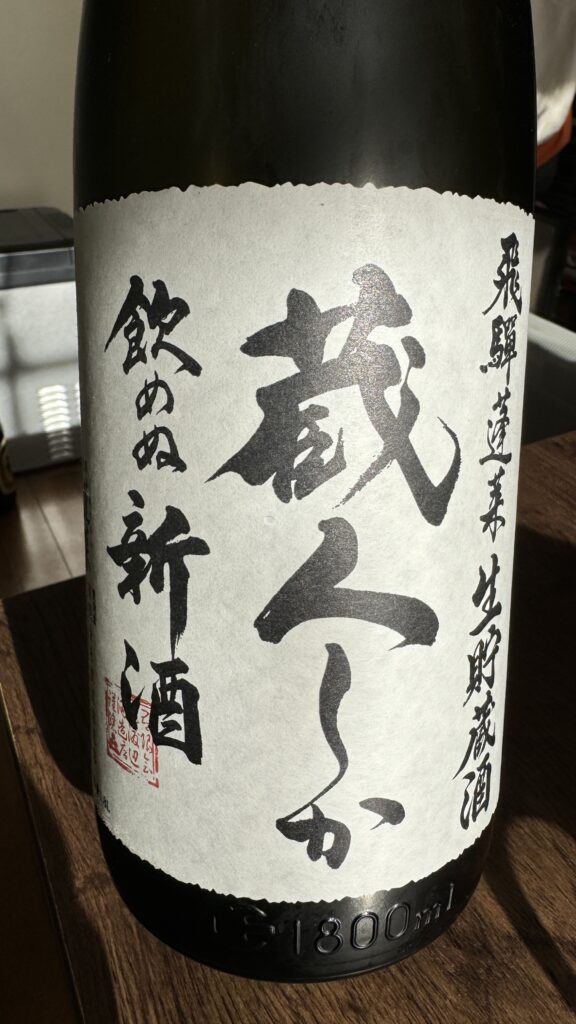 飛騨蓬莱 生貯蔵酒
蔵人しか
飲めぬ新酒
1800ml